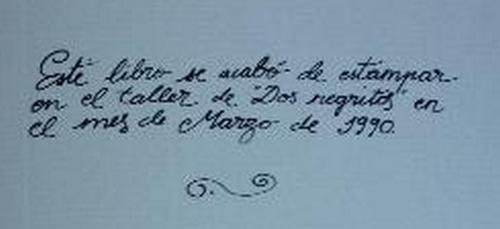 Esté libro se acabó de estampar
en el taller de "Dos negritos" en
el mes de Marzo de 1990.